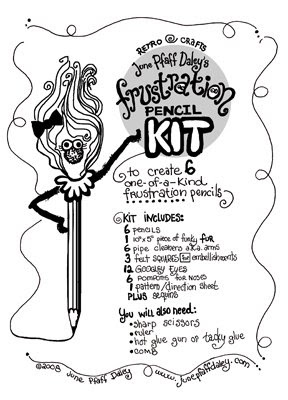 RETRO @ CRAFTS
June Pfaff Daley's
frustration
PENCIL
KIT
to create 6
one-of-a-kind
frustration pencils
KIT INCLUDES:
6 PENCILS
1 10"x5" piece of funky FUR
6 pipe cleaners a.k.a. arms
3 felt SQUARES for embellishments
12 GOOGLY EYES
6 POMPOMS for NOSES
1 pattern/direction sheet
PLUS sequins
You will also need:
•sharp scissors
•ruler
•hot glue gun or tacky glue
•comb
©2008 June Pfaff Daley www.junepfaffdaley.com